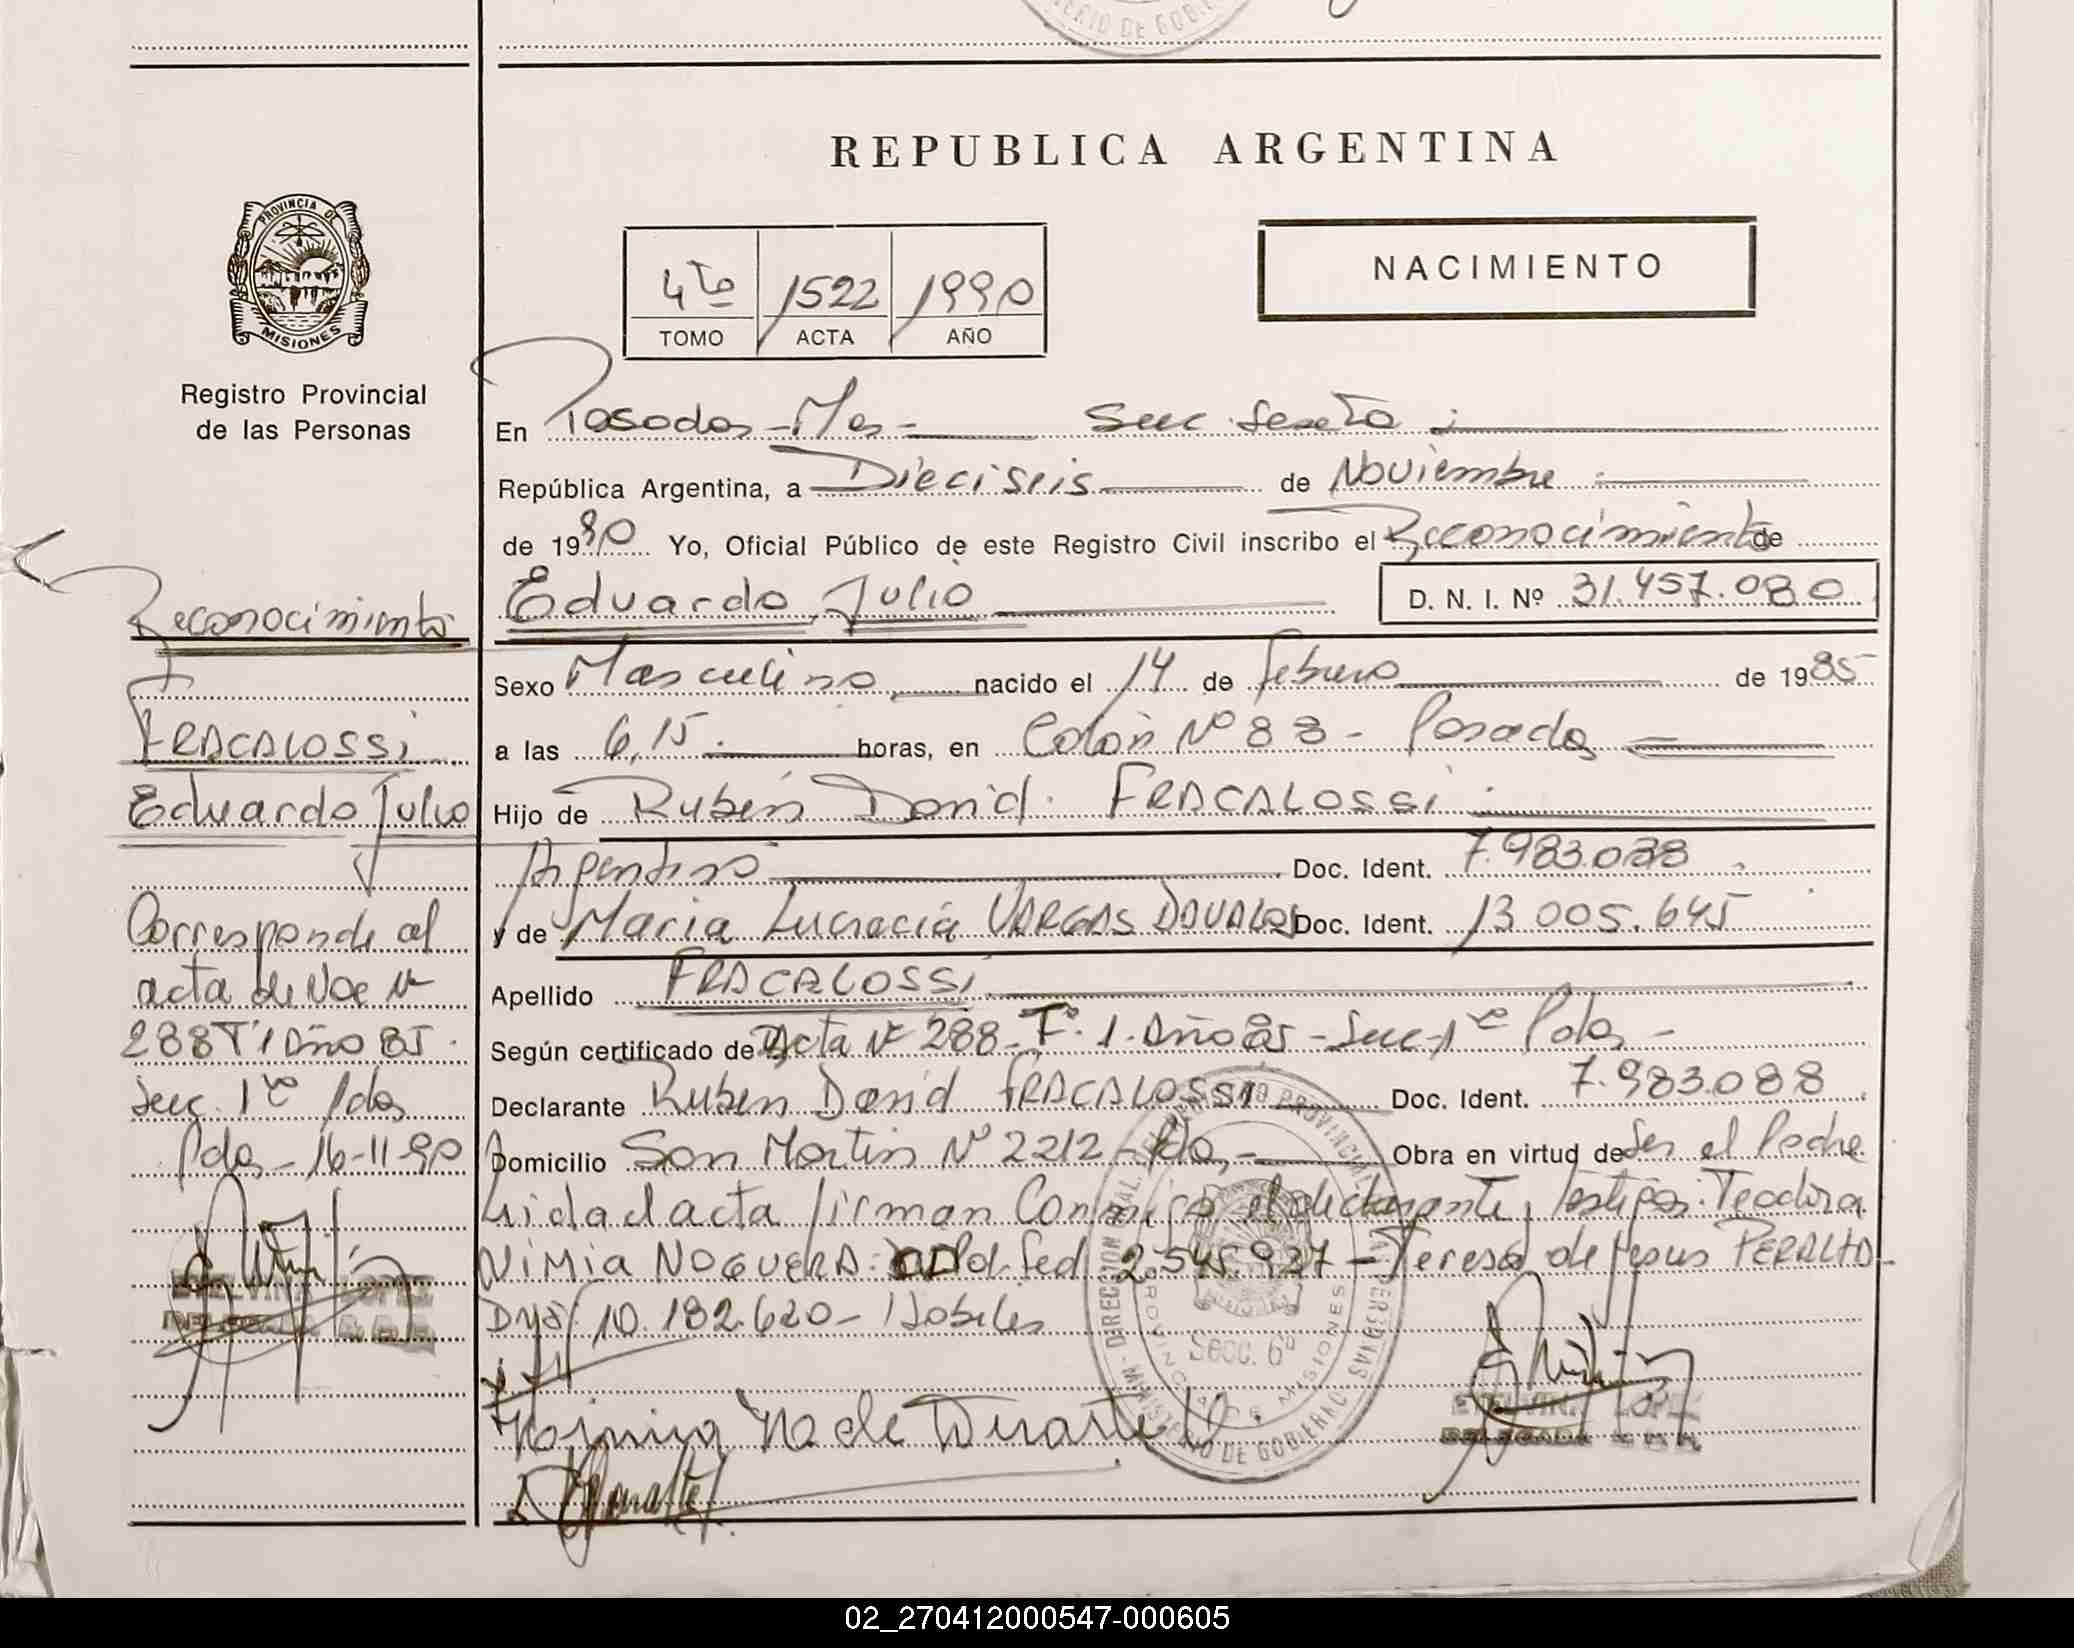 REPUBLICA ARGENTINA
PROVINCIA DE
MISIONES
Registro Provincial
de las Personas
4to 1522 1990
TOMO ACTA AÑO
NACIMIENTO
En Posadas - Mes - Secc. Sexta
República Argentina, a Dieciseis de Noviembre
de 1990 Yo, Oficial Público de este Registro Civil inscribo el Reconocimiento de
Eduardo Julio D. N. I. Nº 31.457.080
Sexo Masculino nacido el 14 de febrero de 1985
a las 6,15 horas, en Colón Nº 83 - Posadas
Hijo de Rubén David FRACALOSSI
Argentino Doc. Ident.
y de Maria Lucrecia VARGAS DAVALOS Doc. Ident. 13.005.645
Apellido FRACALOSSI
Según certificado de Acta Nº 288 - Tº 1 - Año 85 - Secc. 1ra Pdas -
Declarante Rubén David FRACALOSSI Doc. Ident. 7.983.088
Domicilio San Martin Nº 2212 - Pdas - Obra en virtud de Ser el Padre
Leida el acta firman Conmigo el declarante, testigos: Teodora
NIMIA NOGUERA Fed 2.545.927 - Teresa de Jesus PERALTA -
10.182.620 - Hobiles
Reconocimiento
FRACALOSSI
Eduardo Julio
Corresponde al
acta de Nac Nº
288 Tº 1 Año 85
Secc. 1ra Pdas
Pdas - 16-11-90
ETELVINA LOPEZ
Secc. 6º
ETELVINA LOPEZ
02_270412000547-000605